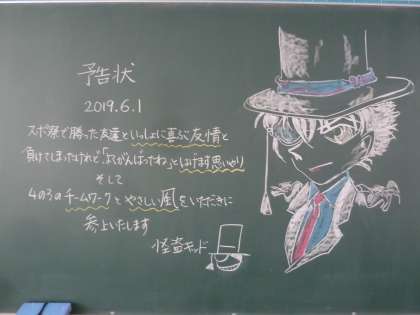 予告状
2019.6.1
スポ祭で勝った友達といっしょに喜ぶ友情と
負けてしまったけれど「よくがんばったね」とはげます思いやり
そして
4の3のチームワークとやさしい風をいただきに
参上いたします
怪盗キッド